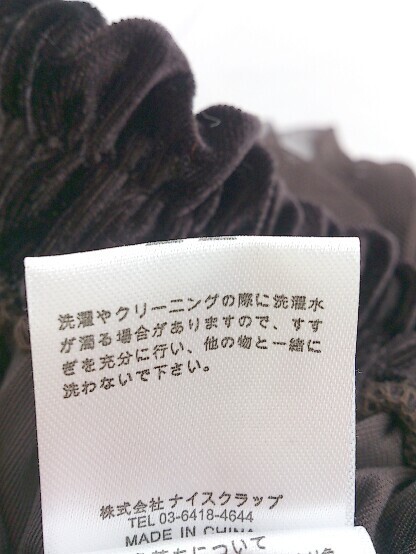 洗濯やクリーニングの際に洗濯水
が濁る場合がありますので、すす
ぎを充分に行い、他の物と一緒に
洗わないで下さい。
株式会社ナイスクラップ
TEL 03-6418-4644
MADE IN CHINA
について